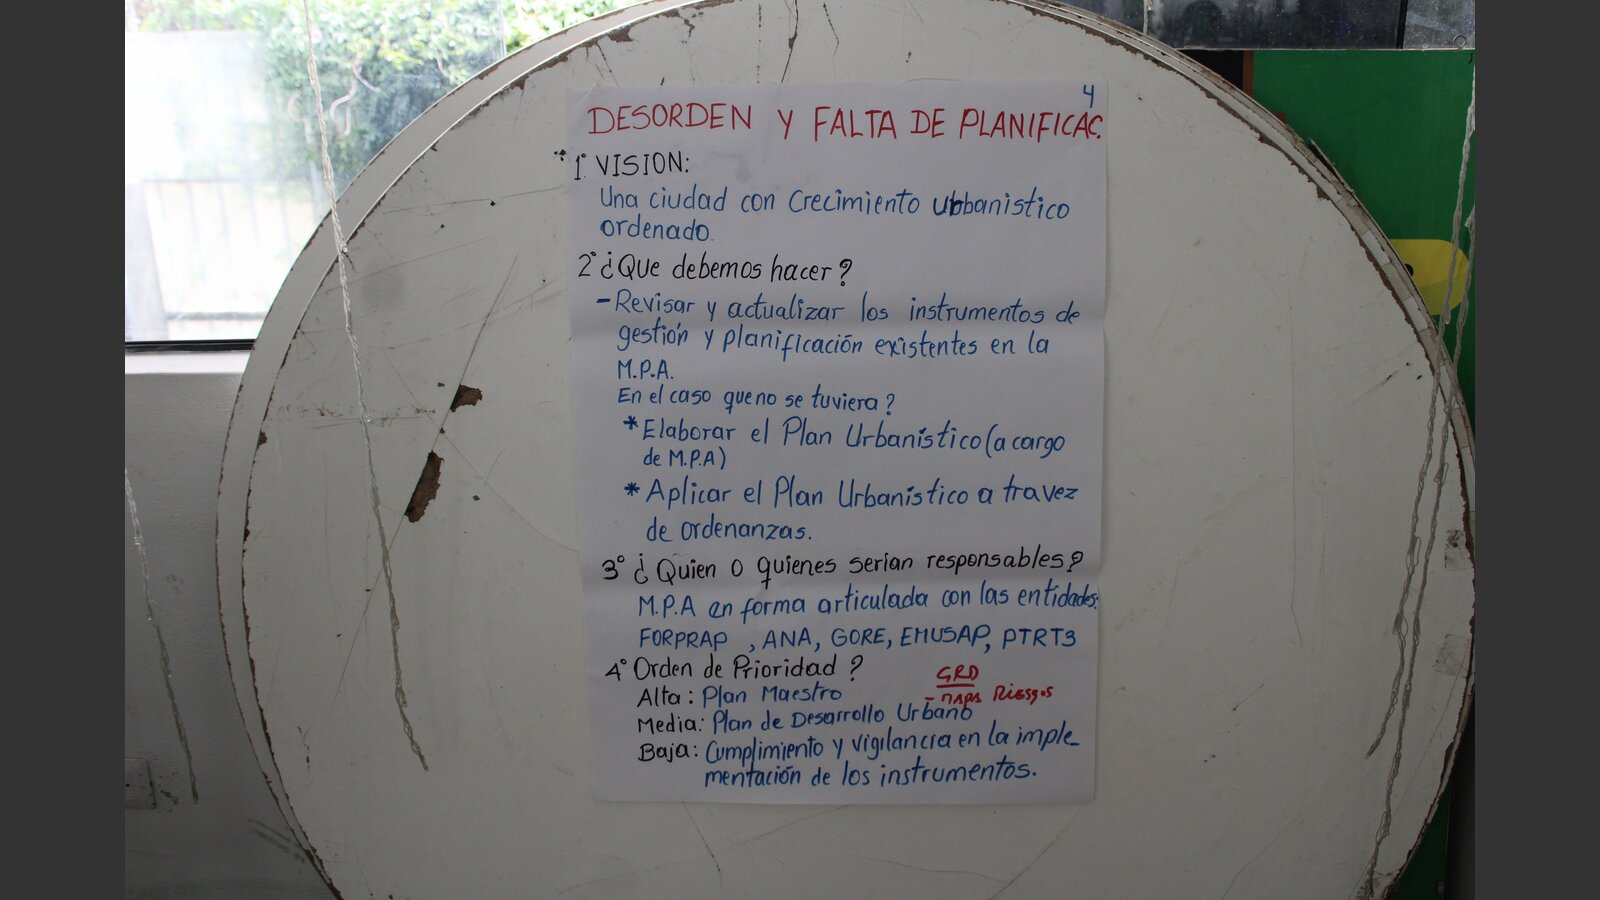 4
DESORDEN Y FALTA DE PLANIFICAC.
1° VISION:
Una ciudad con Crecimiento urbbanistico
ordenado.
2° ¿QUe debemos hacer?
- Revisar y actualizar los instrumentos de
gestión y planificación existentes en la
M.P.A.
En el caso que no se tuviera?
* Elaborar el Plan Urbanístico (a cargo
de M.P.A)
* Aplicar el Plan Urbanístico a travez
de ordenanzas.
3° ¿Quien o quienes serian responsables?
M.P.A en forma articulada con las entidades:
FORPRAP , ANA, GORE, EMUSAP, PTRT3
4° Orden de Prioridad?
GRD
Alta: Plan Maestro
- MAPA Riesgos
Media: Plan de Desarrollo Urbano
Baja: Cumplimiento y vigilancia en la imple-
mentación de los instrumentos.